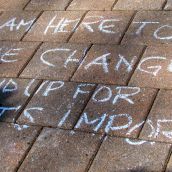 AM HERE TO
E CHANGE
ND UP FOR
TS IMPOR